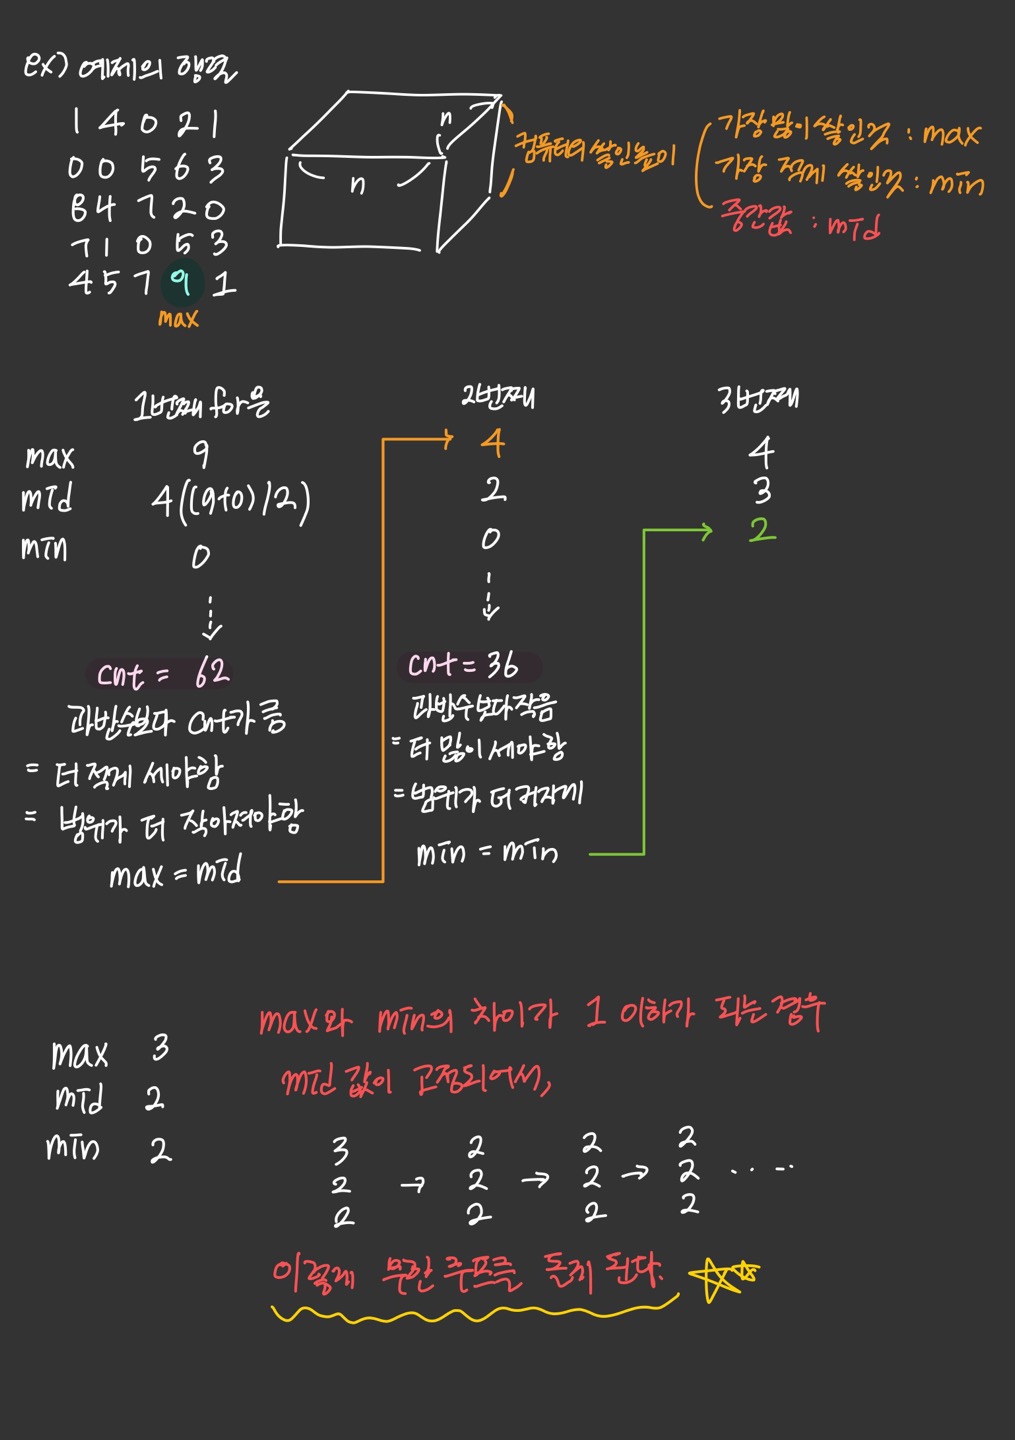 ex) 예제의 행렬
1 4 0 2 1
0 0 5 6 3
8 4 7 2 0
7 1 0 5 3
4 5 7 9 1
max
n
n
컴퓨터의 쌓인 높이
가장 많이 쌓인것 : max
가장 적게 쌓인것 : min
중간값 : mid
1번째 for문
max 9
mid 4((9+0)/2)
min 0
cnt = 62
과반수보다 cnt가 큼
= 더 적게 세야함
= 범위가 더 작아져야함
max = mid
2번째
4
2
0
cnt = 36
과반수보다 작음
= 더 많이 세야함
= 범위가 더 커지게
min = min
3번째
4
3
2
max 3
mid 2
min 2
max와 min의 차이가 1 이하가 되는 경우
mid 값이 고정되어서,
3 2 2 2
2 → 2 → 2 → 2 .. ..
2 2 2 2
이렇게 무한 루프를 돌게 된다.